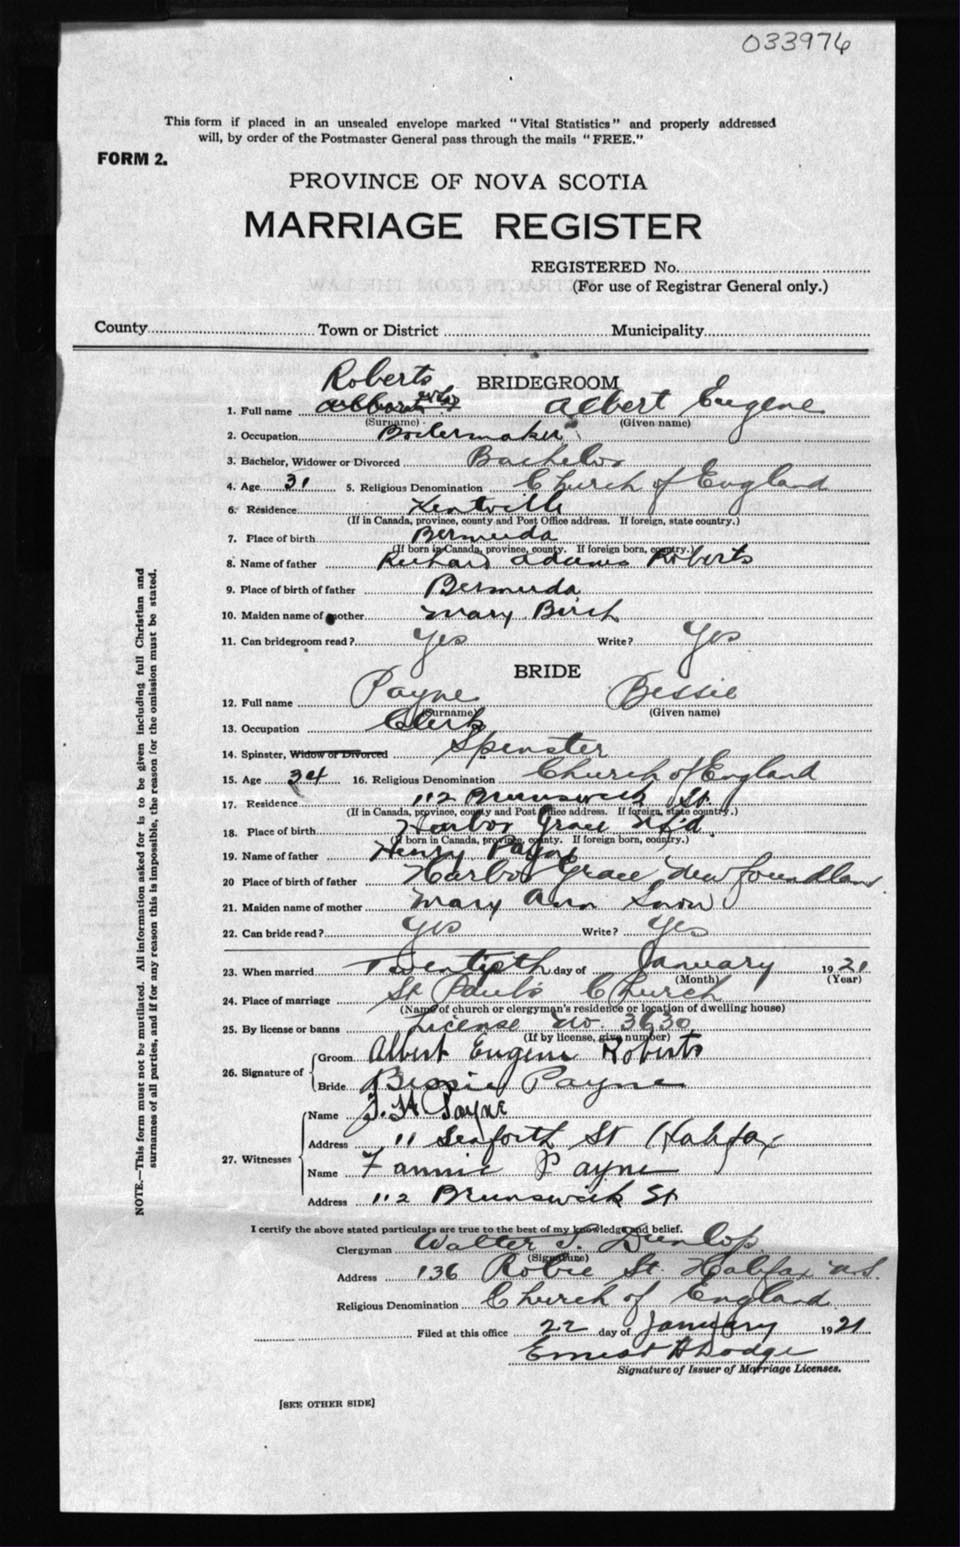 033976
This form if placed in an unsealed envelope marked "Vital Statistics" and properly addressed
will, by order of the Postmaster General pass through the mails "FREE."
FORM 2.
PROVINCE OF NOVA SCOTIA
MARRIAGE REGISTER
REGISTERED No.
(For use of Registrar General only.)
County Town or District Municipality
Roberts
BRIDEGROOM
1. Full name Albert Eugene
(Surname) (Given name)
2. Occupation Boilermaker
3. Bachelor, Widower or Divorced Bachelor
4. Age 31 5. Religious Denomination Church of England
6. Residence Kentville
(If in Canada, province, county and Post Office address. If foreign, state country.)
7. Place of birth Bermuda
(If born in Canada, province, county. If foreign born, country.)
8. Name of father Richard Adams Roberts
9. Place of birth of father Bermuda
10. Maiden name of mother Mary Birch
11. Can bridegroom read? Yes Write? Yes
BRIDE
12. Full name Payne Bessie
(Surname) (Given name)
13. Occupation Clerk
14. Spinster, Widow or Divorced Spinster
15. Age 34 16. Religious Denomination Church of England
17. Residence 112 Brunswick St.
(If in Canada, province, county and Post Office address. If foreign, state country.)
18. Place of birth Harbor Grace Nf'd.
(If born in Canada, province, county. If foreign born, country.)
19. Name of father Henry Payne
20 Place of birth of father Harbor Grace, Newfoundland.
21. Maiden name of mother Mary Ann Snow
22. Can bride read? Yes Write? Yes
23. When married Twentieth day of January 1921
(Month) (Year)
24. Place of marriage St Paul's Church
(Name of church or clergyman's residence or location of dwelling house)
25. By license or banns License no. 3630
(If by license, give number)
26. Signature of Groom Albert Eugene Roberts
Bride Bessie Payne
27. Witnesses Name Payne
Address 11 Seaforth St Halifax
Name Fannie Payne
Address 112 Brunswick St
I certify the above stated particulars are true to the best of my knowledge and belief.
Clergyman Walter J. Dunlop
(Signature)
Address 136 Robie St. Halifax N.S.
Religious Denomination Church of England
Filed at this office 22 day of January 1921
Ernest H Dodge
Signature of Issuer of Marriage Licenses.
[SEE OTHER SIDE]
NOTE.—This form must not be mutilated. All information asked for is to be given including full Christian and
surnames of all parties, and if for any reason this is impossible, the reason for the omission must be stated.